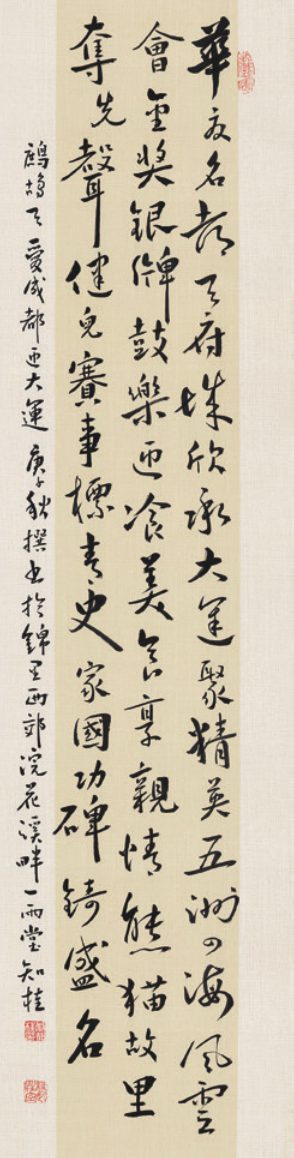 華夏名都天府城欣承大運聚精英五洲四海風雲
會金獎銀牌鼓樂迎飡美食享親情熊貓故里
奪先聲健兒賽事標青史家國功碑鑄盛名
鷓鴣天 愛成都迎大運 庚子秋撰書於錦里西郊浣花溪畔一雨堂知桂